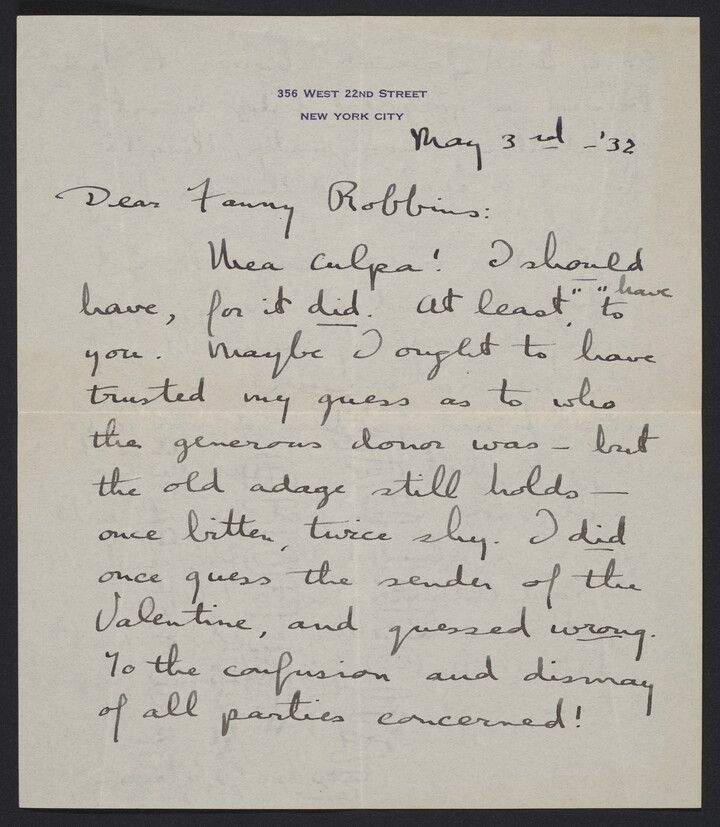 356 WEST 22ND STREET
NEW YORK CITY
May 3rd - '32
Dear Fanny Robbins:
Mea culpa! I should
have, for it did. At least, " " have
to
you. Maybe I ought to have
trusted my guess as to who
the generous donor was – but
the old adage still holds –
once bitten, twice shy. I did
once guess the sender of the
Valentine, and guessed wrong.
To the confusion and dismay
of all parties concerned!